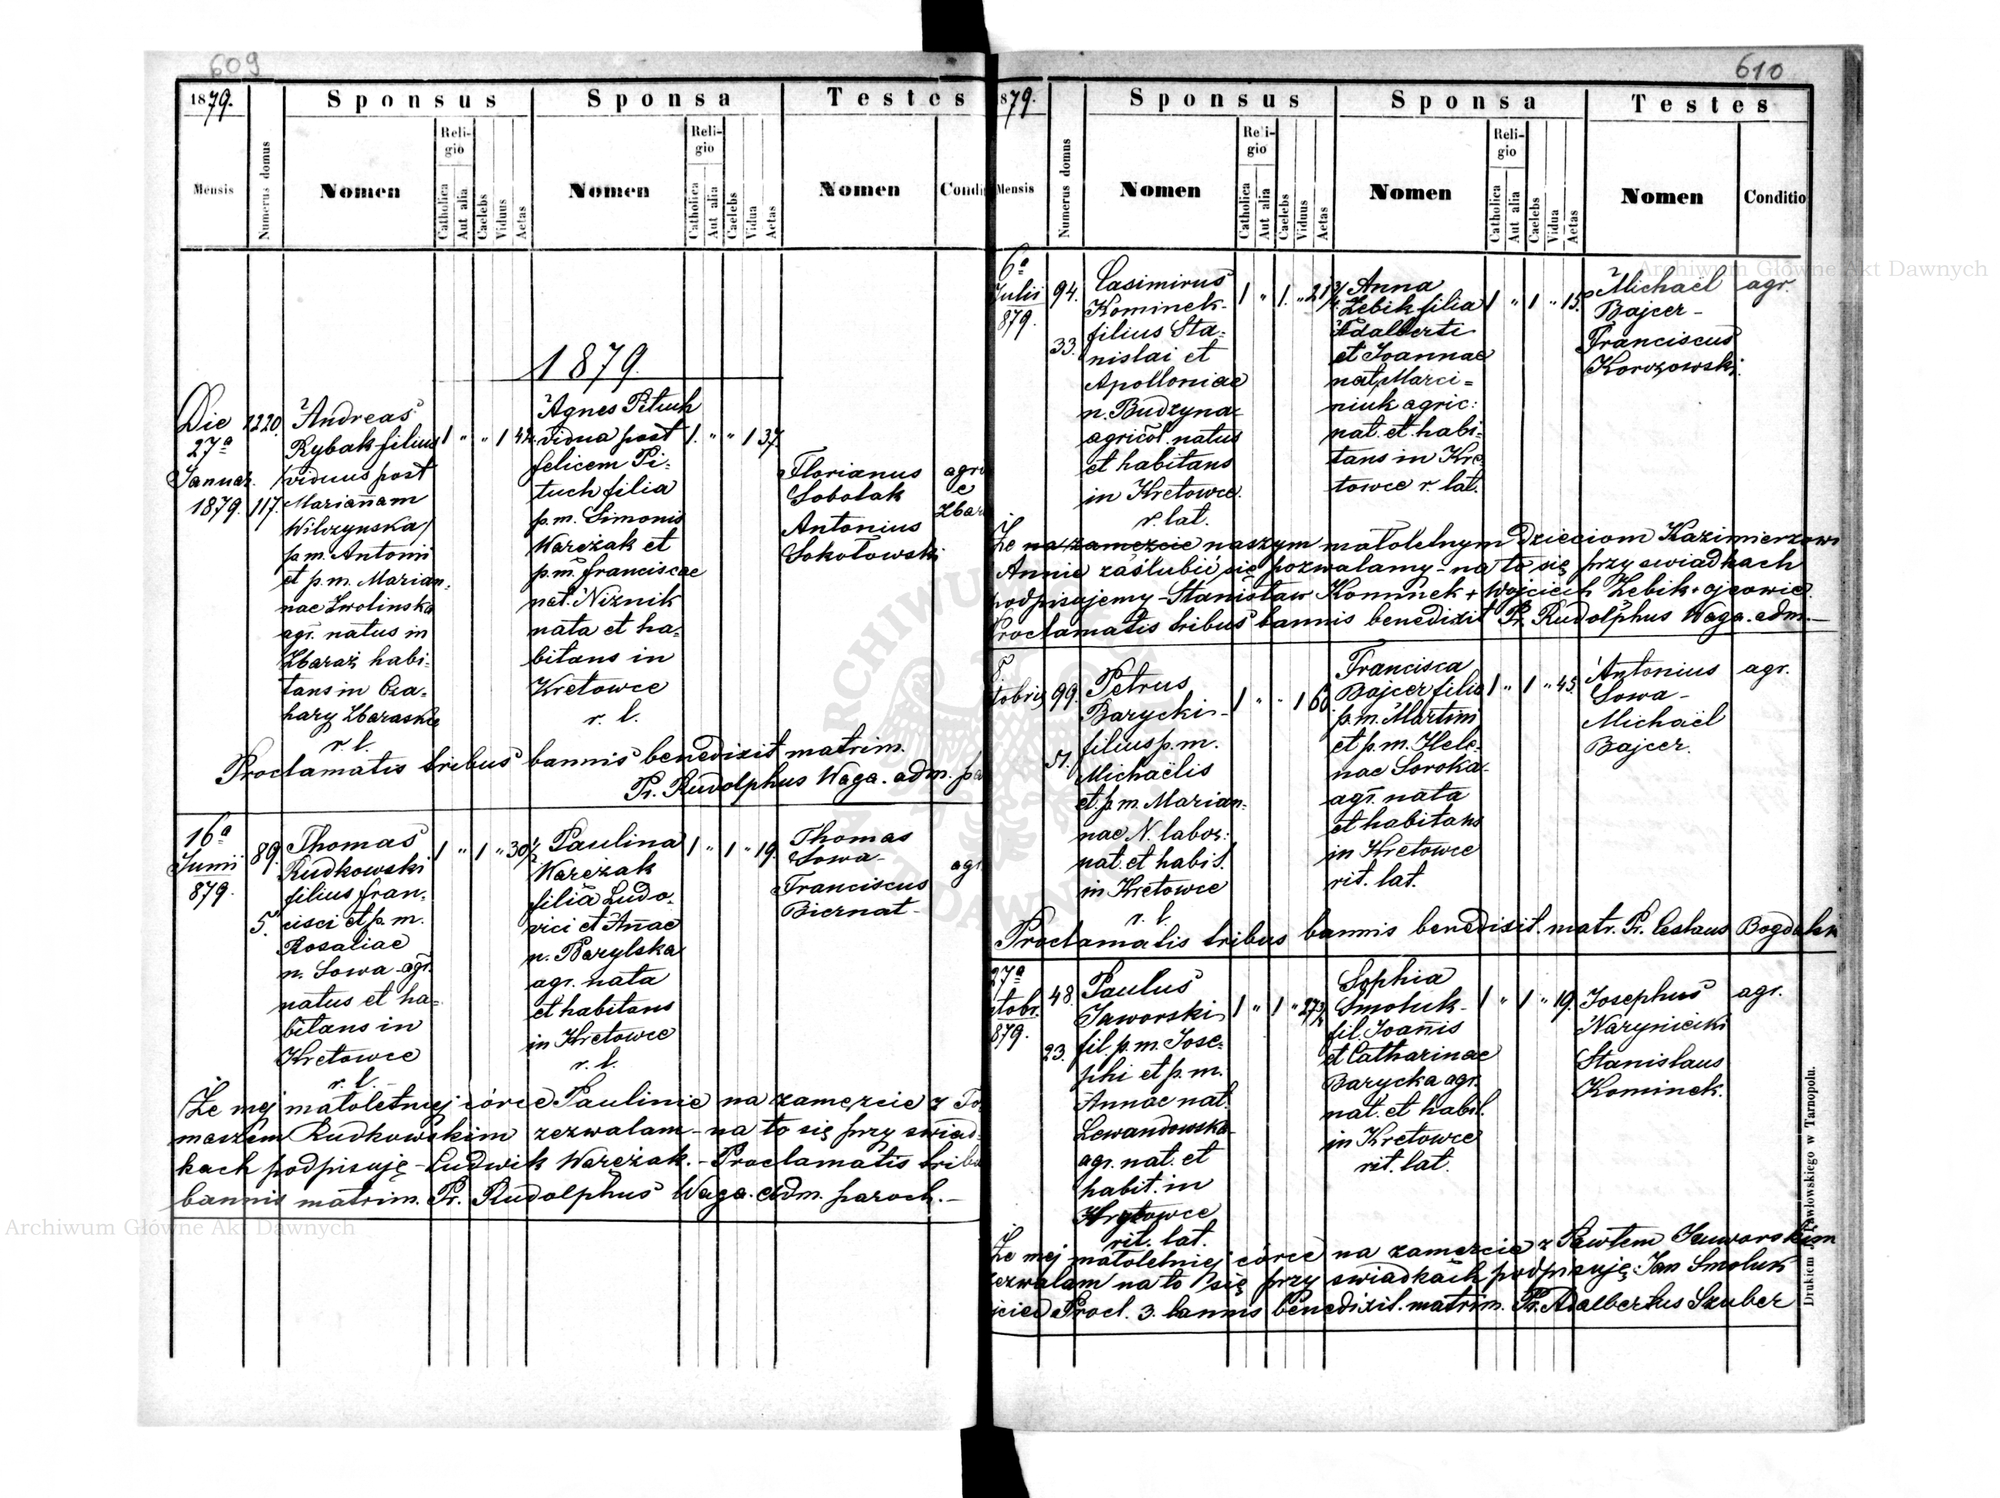 609
1879.
Sponsus
Sponsa
Testes
Mensis
Numerus domus
Nomen
Religio
Catholica
Aut alia
Caelebs
Viduus
Aetas
Nomen
Religio
Catholica
Aut alia
Caelebs
Vidua
Aetas
Nomen
1879.
Die
27a
Januar.
1879.
117.
Andreas
Rybak filius
/viduus post
Mariannam
Wilczynska/
p.m. Antonii
et p.m. Marian-
nae Zwolinska
agr. natus in
Zbaraż habi-
tans in Cza-
hary Zbaraskie
r. l.
1 " " 1 42.
Agnes Pituch
vidua post
felicem Pi-
tuch filia
p.m. Simonis
Wareżak et
p.m. franciscae
nat. Niznik
nata et ha-
bitans in
Kretowce
r. l.
1. " " 1 37.
Florianus
Sobolak
Antonius
Sokołowski
Proclamatis tribus bannis benedixit matrim.
Pr. Rudolphus Waga. adm. pa
16a
Junii
879.
89.
5.
Thomas
Rudkowski
filius fran-
cisci et p.m.
Rosaliae
n. Sowa agr.
natus et ha-
bitans in
Kretowce
r. l.
1 " 1 " 30½
Paulina
Wareżak
filia Ludo-
vici et Annae
n. Barylska
agr. nata
et habitans
in Kretowce
r. l.
1 " 1 " 19.
Thomas
Sowa
Franciscus
Biernat
agr.
Że mej małoletniej córce Paulinie na zamęzcie z To-
maszem Rudkowskim zezwalam - na to się przy swiad-
kach podpisuję - Ludwik Wareżak. - Proclamatis tribu
bannis matrim. Pr. Rudolphus Waga. adm. paroch. -
610
1879.
Sponsus
Sponsa
Testes
Mensis
Numerus domus
Nomen
Religio
Catholica
Aut alia
Caelebs
Viduus
Aetas
Nomen
Religio
Catholica
Aut alia
Caelebs
Vidua
Aetas
Nomen
Conditio
6a
Julii
879.
94.
33.
Casimirus
Kominek
filius Sta-
nislai et
Apolloniae
n. Budzyna
agricol. natus
et habitans
in Kretowce
r. lat.
Anna
Zebik filia
Adalberti
et Joannae
nat. Marci-
niuk agric:
nat. et habi-
tans in Kre-
towce r. lat.
1 " 1 " 15
Michaël
Bajcer -
Franciscus
Korczowski.
agr.
Że na zamęzcie naszym małoletnym dzieciom Kazimierzowi
Annie zaślubić się pozwalamy - na to się przy swiadkach
podpisujemy - Stanisław Kominek + Wojciech Zebik + ojcowie.
Proclamatis tribus bannis benedixit Pr. Rudolphus Waga. adm. -
99.
51.
Petrus
Barycki
filius p.m.
Michaëlis
et p.m. Marian-
nae N. labor:
nat. et habit.
in Kretowce
r. l.
1 " " 1 60
Francisca
Bajcer filia
p.m. Martini
et p.m. Hele-
nae Soroka
agr. nata
et habitans
in Kretowce
rit. lat.
1 " 1 " 45.
Antonius
Sowa -
Michaël
Bajcer.
agr.
Proclamatis tribus bannis benedixit matr. Pr. Ceslaus
27a
879.
48.
23.
Paulus
Jaworski
fil. p.m. Jose-
phi et p.m.
Annae nat.
Lewandowska
agr. nat. et
habit. in
Kretowce
rit. lat.
Sophia
Smoluk
fil. Joannis
et Catharinae
Barycka agr.
nat. et habit.
in Kretowce
rit. lat.
1 " 1 " 19.
Josephus
Narynicki
Stanislaus
Kominek.
agr.
Że mej małoletniej córce na zamęzcie z Pawłem Jaworskim
zezwalam na to się przy swiadkach podpisuję: Jan Smoluk
ojciec Procl. 3. bannis benedixit. matrim. Pr. Adalbertus Szuber
Drukiem J. Pawłowskiego w Tarnopolu.
Archiwum Główne Akt Dawnych
Archiwum Główne Akt Dawnych